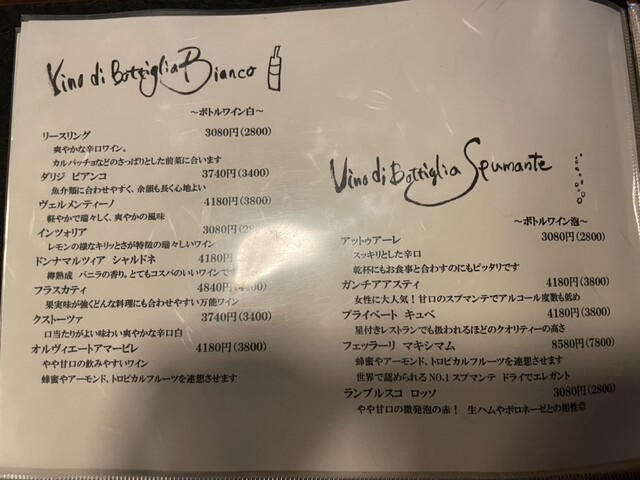 Vino di Bottiglia Bianco
～ボトルワイン白～
リースリング 3080円(2800)
爽やかな辛口ワイン。
カルパッチョなどのさっぱりとした前菜に合います
ダリジ ビアンコ 3740円(3400)
魚介類に合わせやすく、余韻も長く心地よい
ヴェルメンティーノ 4180円(3800)
軽やかで瑞々しく、爽やかの風味
インツォリア 3080円
レモンの様なキリッとさが特徴の瑞々しいワイン
ドンナマルツィア シャルドネ 4180円
樽熟成 バニラの香り。とてもコスパのいいワインです
フラスカティ 4840円(4400)
果実味が強くどんな料理にも合わせやすい万能ワイン
クストーツァ 3740円(3400)
口当たりがよい味わい爽やかな辛口白
オルヴィエートアマービレ 4180円(3800)
やや甘口の飲みやすいワイン
蜂蜜やアーモンド、トロピカルフルーツを連想させます
Vino di Bottiglia Spumante
～ボトルワイン泡～
アットゥアーレ 3080円(2800)
スッキリとした辛口
乾杯にもお食事と合わすのにもピッタリです
ガンチアアスティ 4180円(3800)
女性に大人気！甘口のスプマンテでアルコール度数も低め
プライベート キュベ 4180円(3800)
星付きレストランでも扱われるほどのクオリティーの高さ
フェッラーリ マキシマム 8580円(7800)
蜂蜜やアーモンド、トロピカルフルーツを連想させます
世界で認められるNO.1スプマンテ ドライでエレガント
ランブルスコ ロッソ 3080円(2800)
やや甘口の微発泡の赤！ 生ハムやボロネーゼとの相性◎